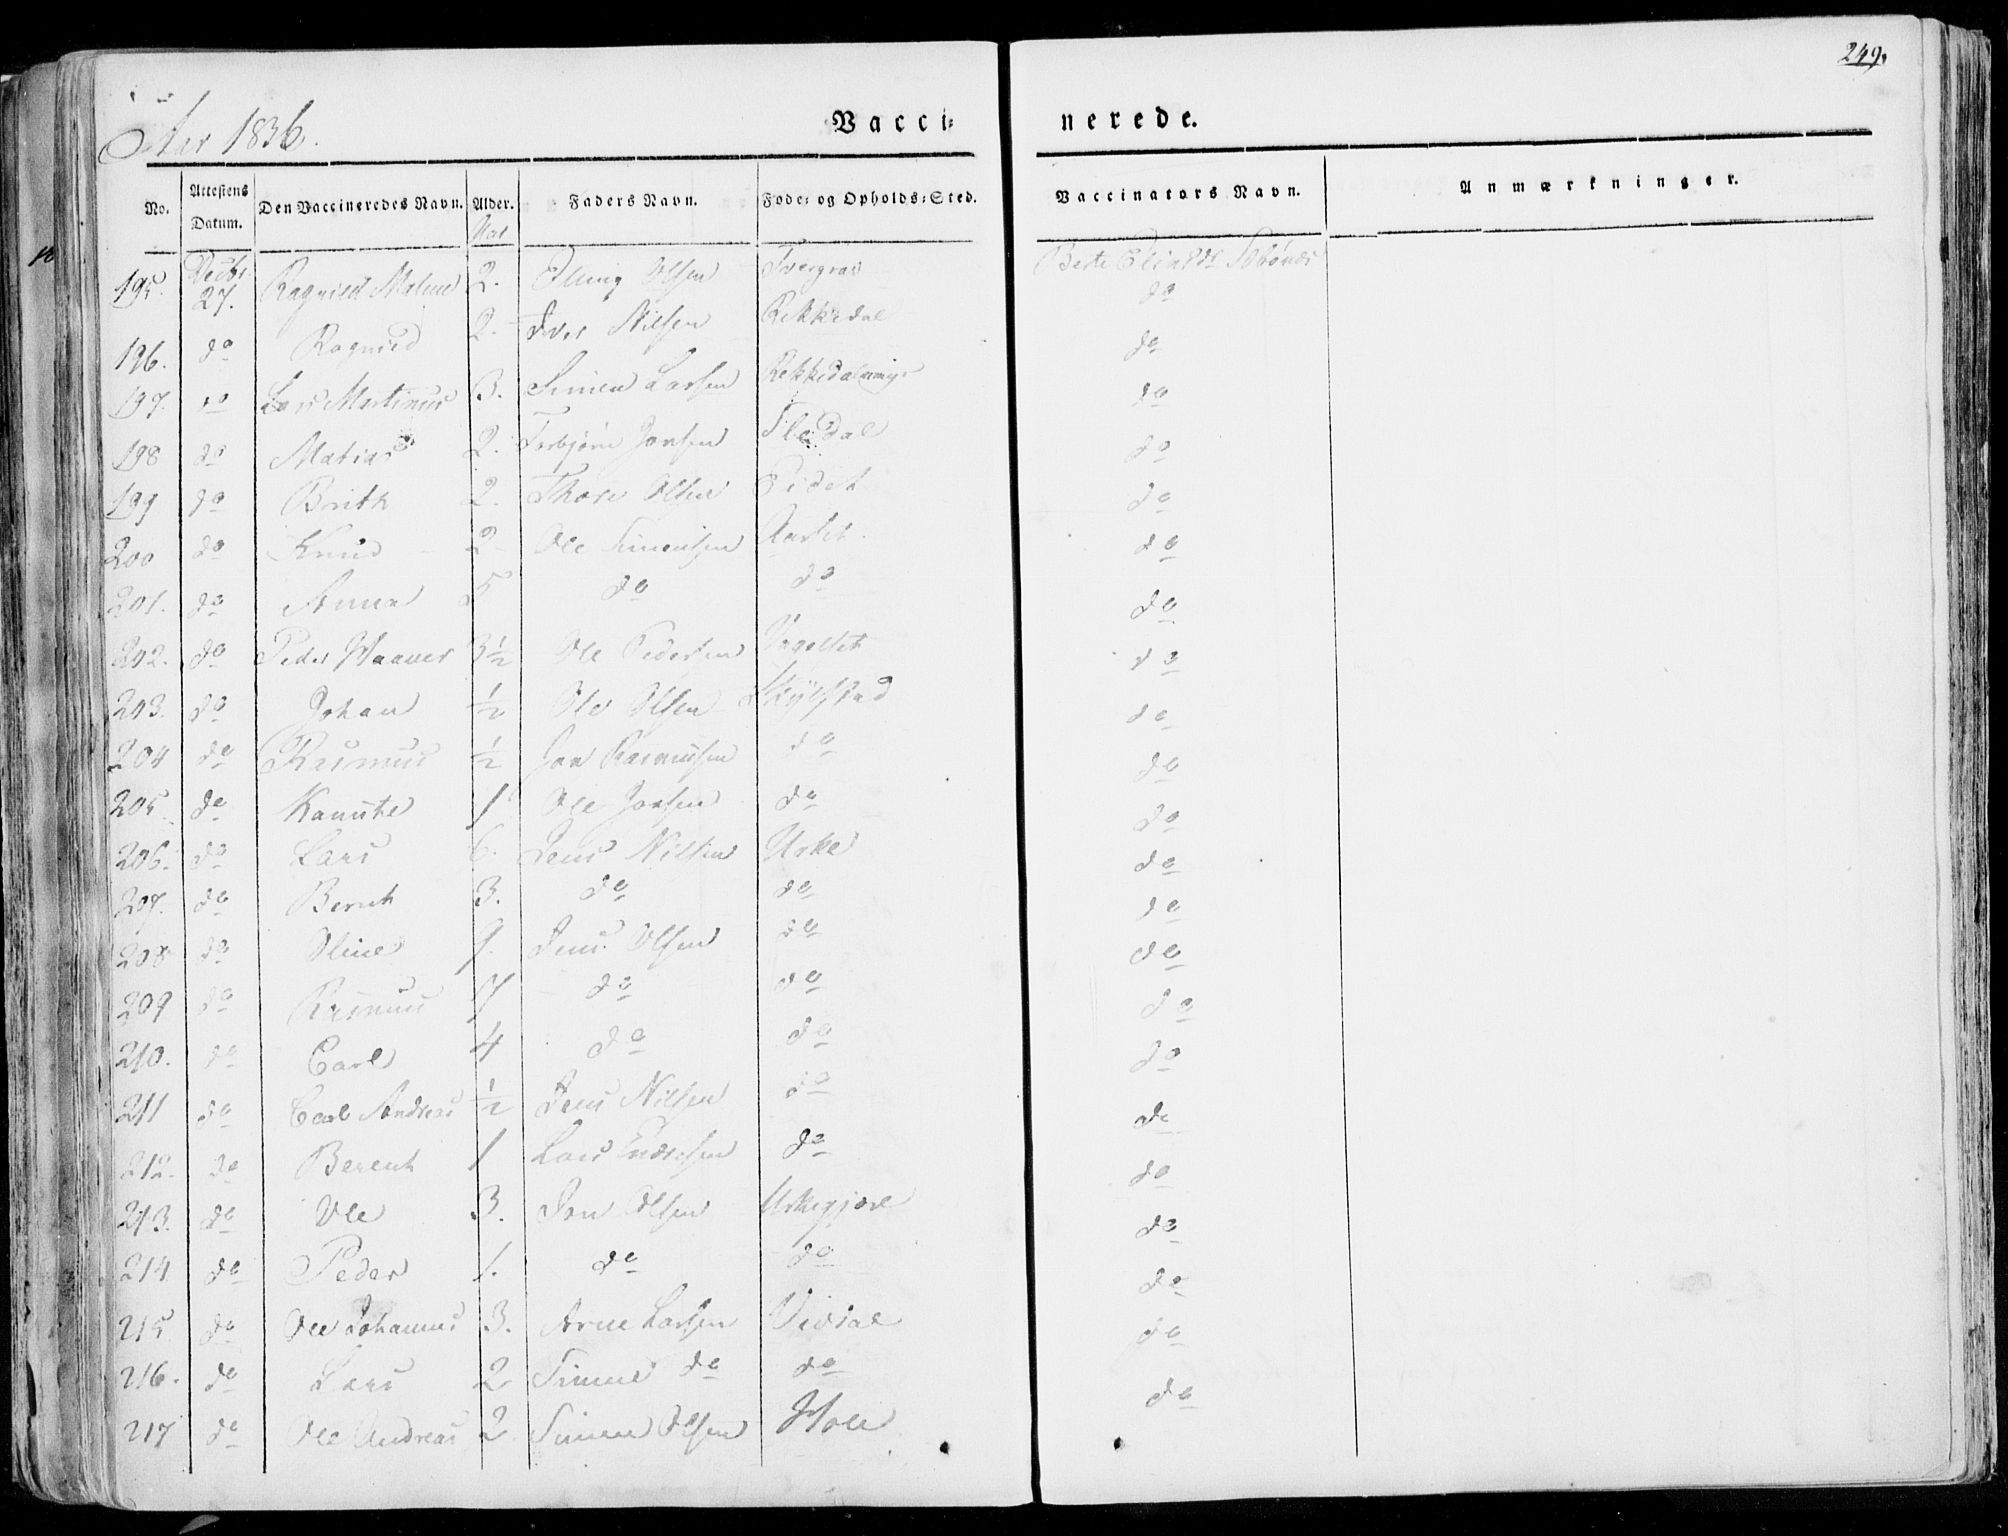 249.
Aar 1836.
Vacci- nerede.
No. Attestens Datum. Den Vaccineredes Navn. Alder. Faders Navn. Føde- og Opholds-Sted. Vaccinators Navn. Anmærkninger.
Aar
195. Decbr 27. Ragnild Malene 2. Elling Olsen Berte
196. do Ragnild 2. Iver Nilsen Rekkedal do
197. do Lars Martinus 3. Simen Larsen do
198 do Matias 2. Torbjørn Jonsen do
199 do Brith 2. Thore Olsen do
200 do Knud 2 Ole Simensen Aarset do
201. do Anna 5 do do do
202. do Peder 3½ Ole Pedersen do
203. do Johan ½ Ole Olsen Skylstad do
204 do Rasmus ½ Jon Rasmusen do do
205 do Kanute 1 Ole Jonsen do do
206. do Lars 6. Jens Nilsen Urke do
207. do Bernt 3. do do do
208 do Oline 9. Jens Olsen do do
209 do Rasmus 7 do do do
210. do Carl 4 do do do
211 do Carl Andreas ½ Jens Nilsen do do
212. do Berent 1 Lars Endresen do do
213. do Ole 3. Jon Olsen Urkegjære do
214. do Peder 1. do do do
215 do Ole Johannes 3. Arne Larsen do
216. do Lars 2 Simen do do do
217 do Ole Andreas 2 Simen Olsen Hole do